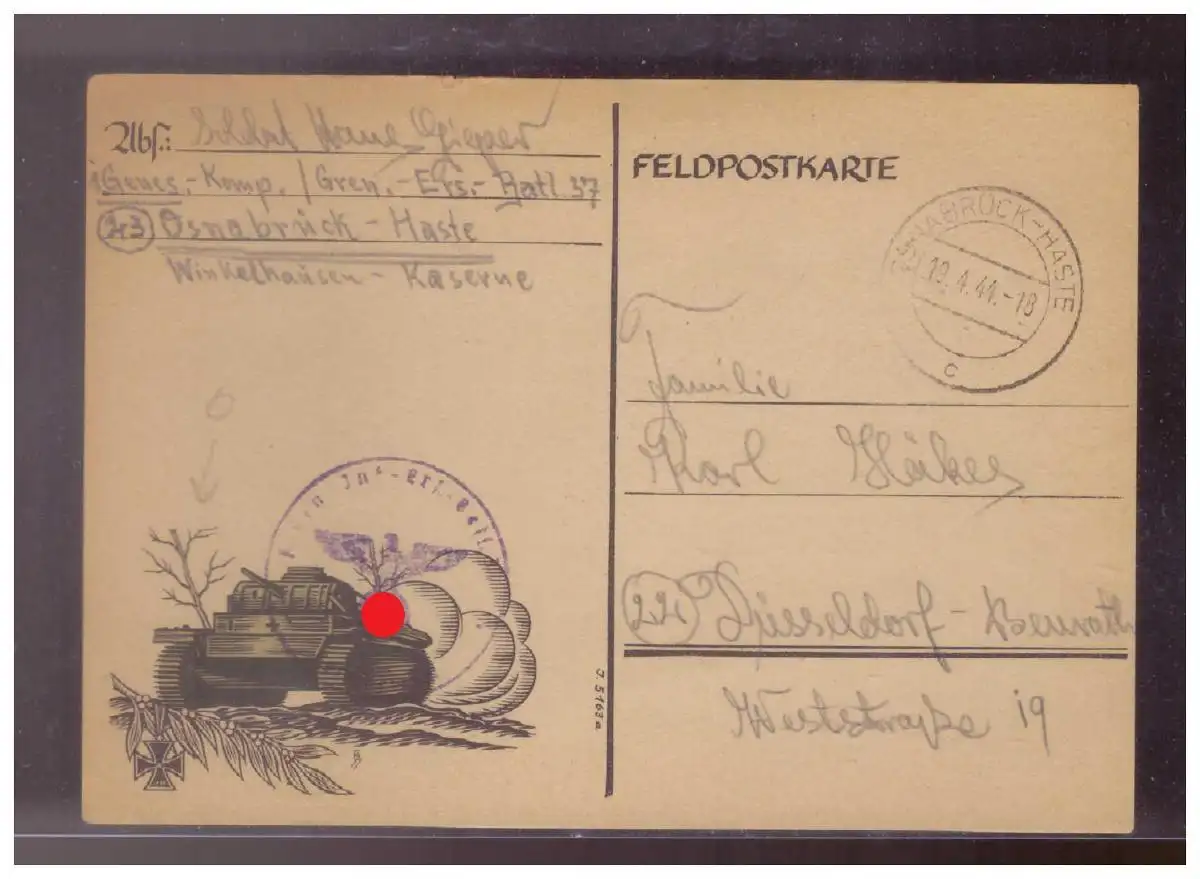 Abs.: Soldat Hans Gieper
Genes.-Komp. / Gren.-Ers.-Batl. 37
23 Osnabrück-Haste
Winkelhausen-Kaserne
Inf.-Ers.-Batl.
J. 5163a
FELDPOSTKARTE
OSNABRÜCK-HASTE
19.4.44.-18
c
Familie
Karl
22 Düsseldorf-Benrath
Weststraße 19